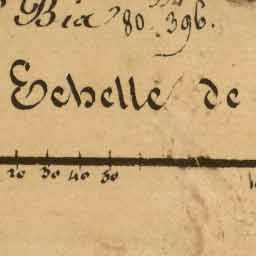 Bia 80 396.
Echelle de
20 30 40 50 1